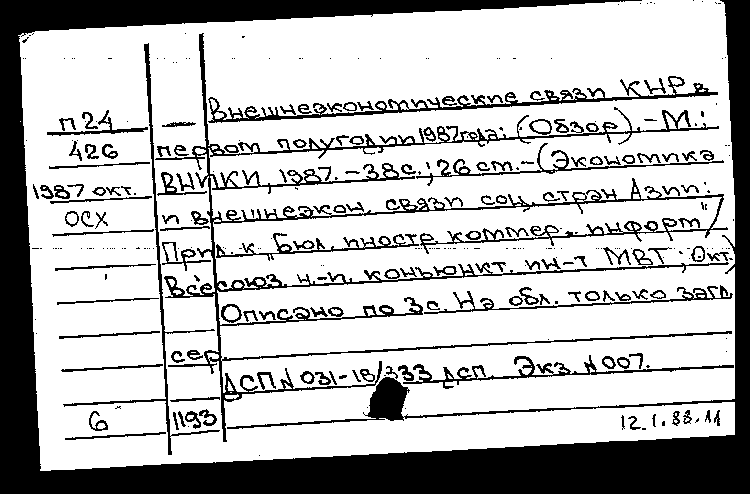 Внешнеэкономические связи КНР в
п24 — первом полугодии 1987 года: (Обзор). - М.:
426 ВНИКИ, 1987. - 38 с.; 26 см. - (Экономика
1987 окт. и внешнеэкон. связи соц. стран Азии:
ОСХ Прил. к „Бюл. иностр. коммер. информ"/
Всесоюз. н.-и. конъюнкт. ин-т МВТ; Окт.)
Описано по 3 с. На обл. только загл.
сер.
ДСП N 031-18/333 дсп. Экз. N 007.
6 1193
12.1.88.11